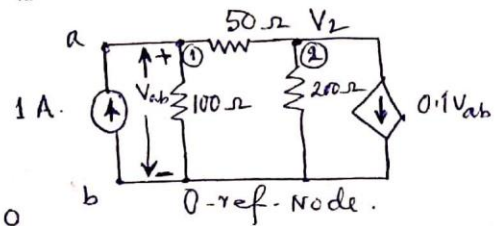 50 Ω V2
a + ① ②
1 A. Vab 100 Ω 200 Ω 0.1Vab
-
b 0-ref-Node.
O